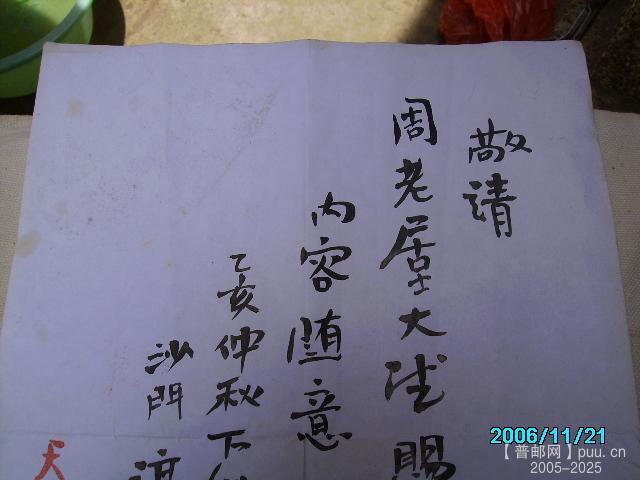 敬请
周老居士大德赐
内容随意
乙亥仲秋下
沙門
天
2006/11/21
【普邮网】puu.cn
2005-2025